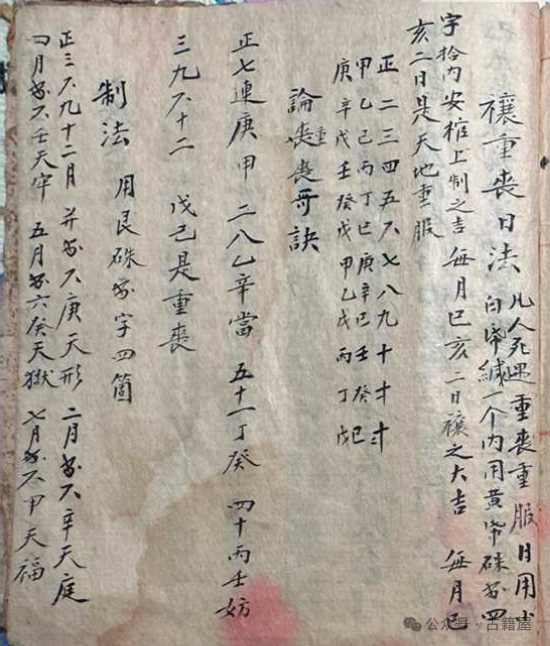 禳重喪日法 凡人死遇重喪重服日用小
白帋緘一个内用黄帋硃書四
字拾内安棺上制之吉 每月巳亥二日禳之大吉 每月巳
亥二日是天地重服
正二三四五六七八九十
甲乙己丙丁巳庚辛巳壬癸巳
庚辛戊壬癸戊甲乙戊丙丁戊
論重喪喪哥訣
正七連庚甲 二八乙辛當 五十一丁癸 四十丙壬妨
三九六十二 戊己是重喪
制法 用艮硃書字四箇
正三六九十二月 并書六庚天形 二月書六辛天庭
四月書六壬天牢 五月書六癸天獄 七月書六甲天福
公众号·古籍屋